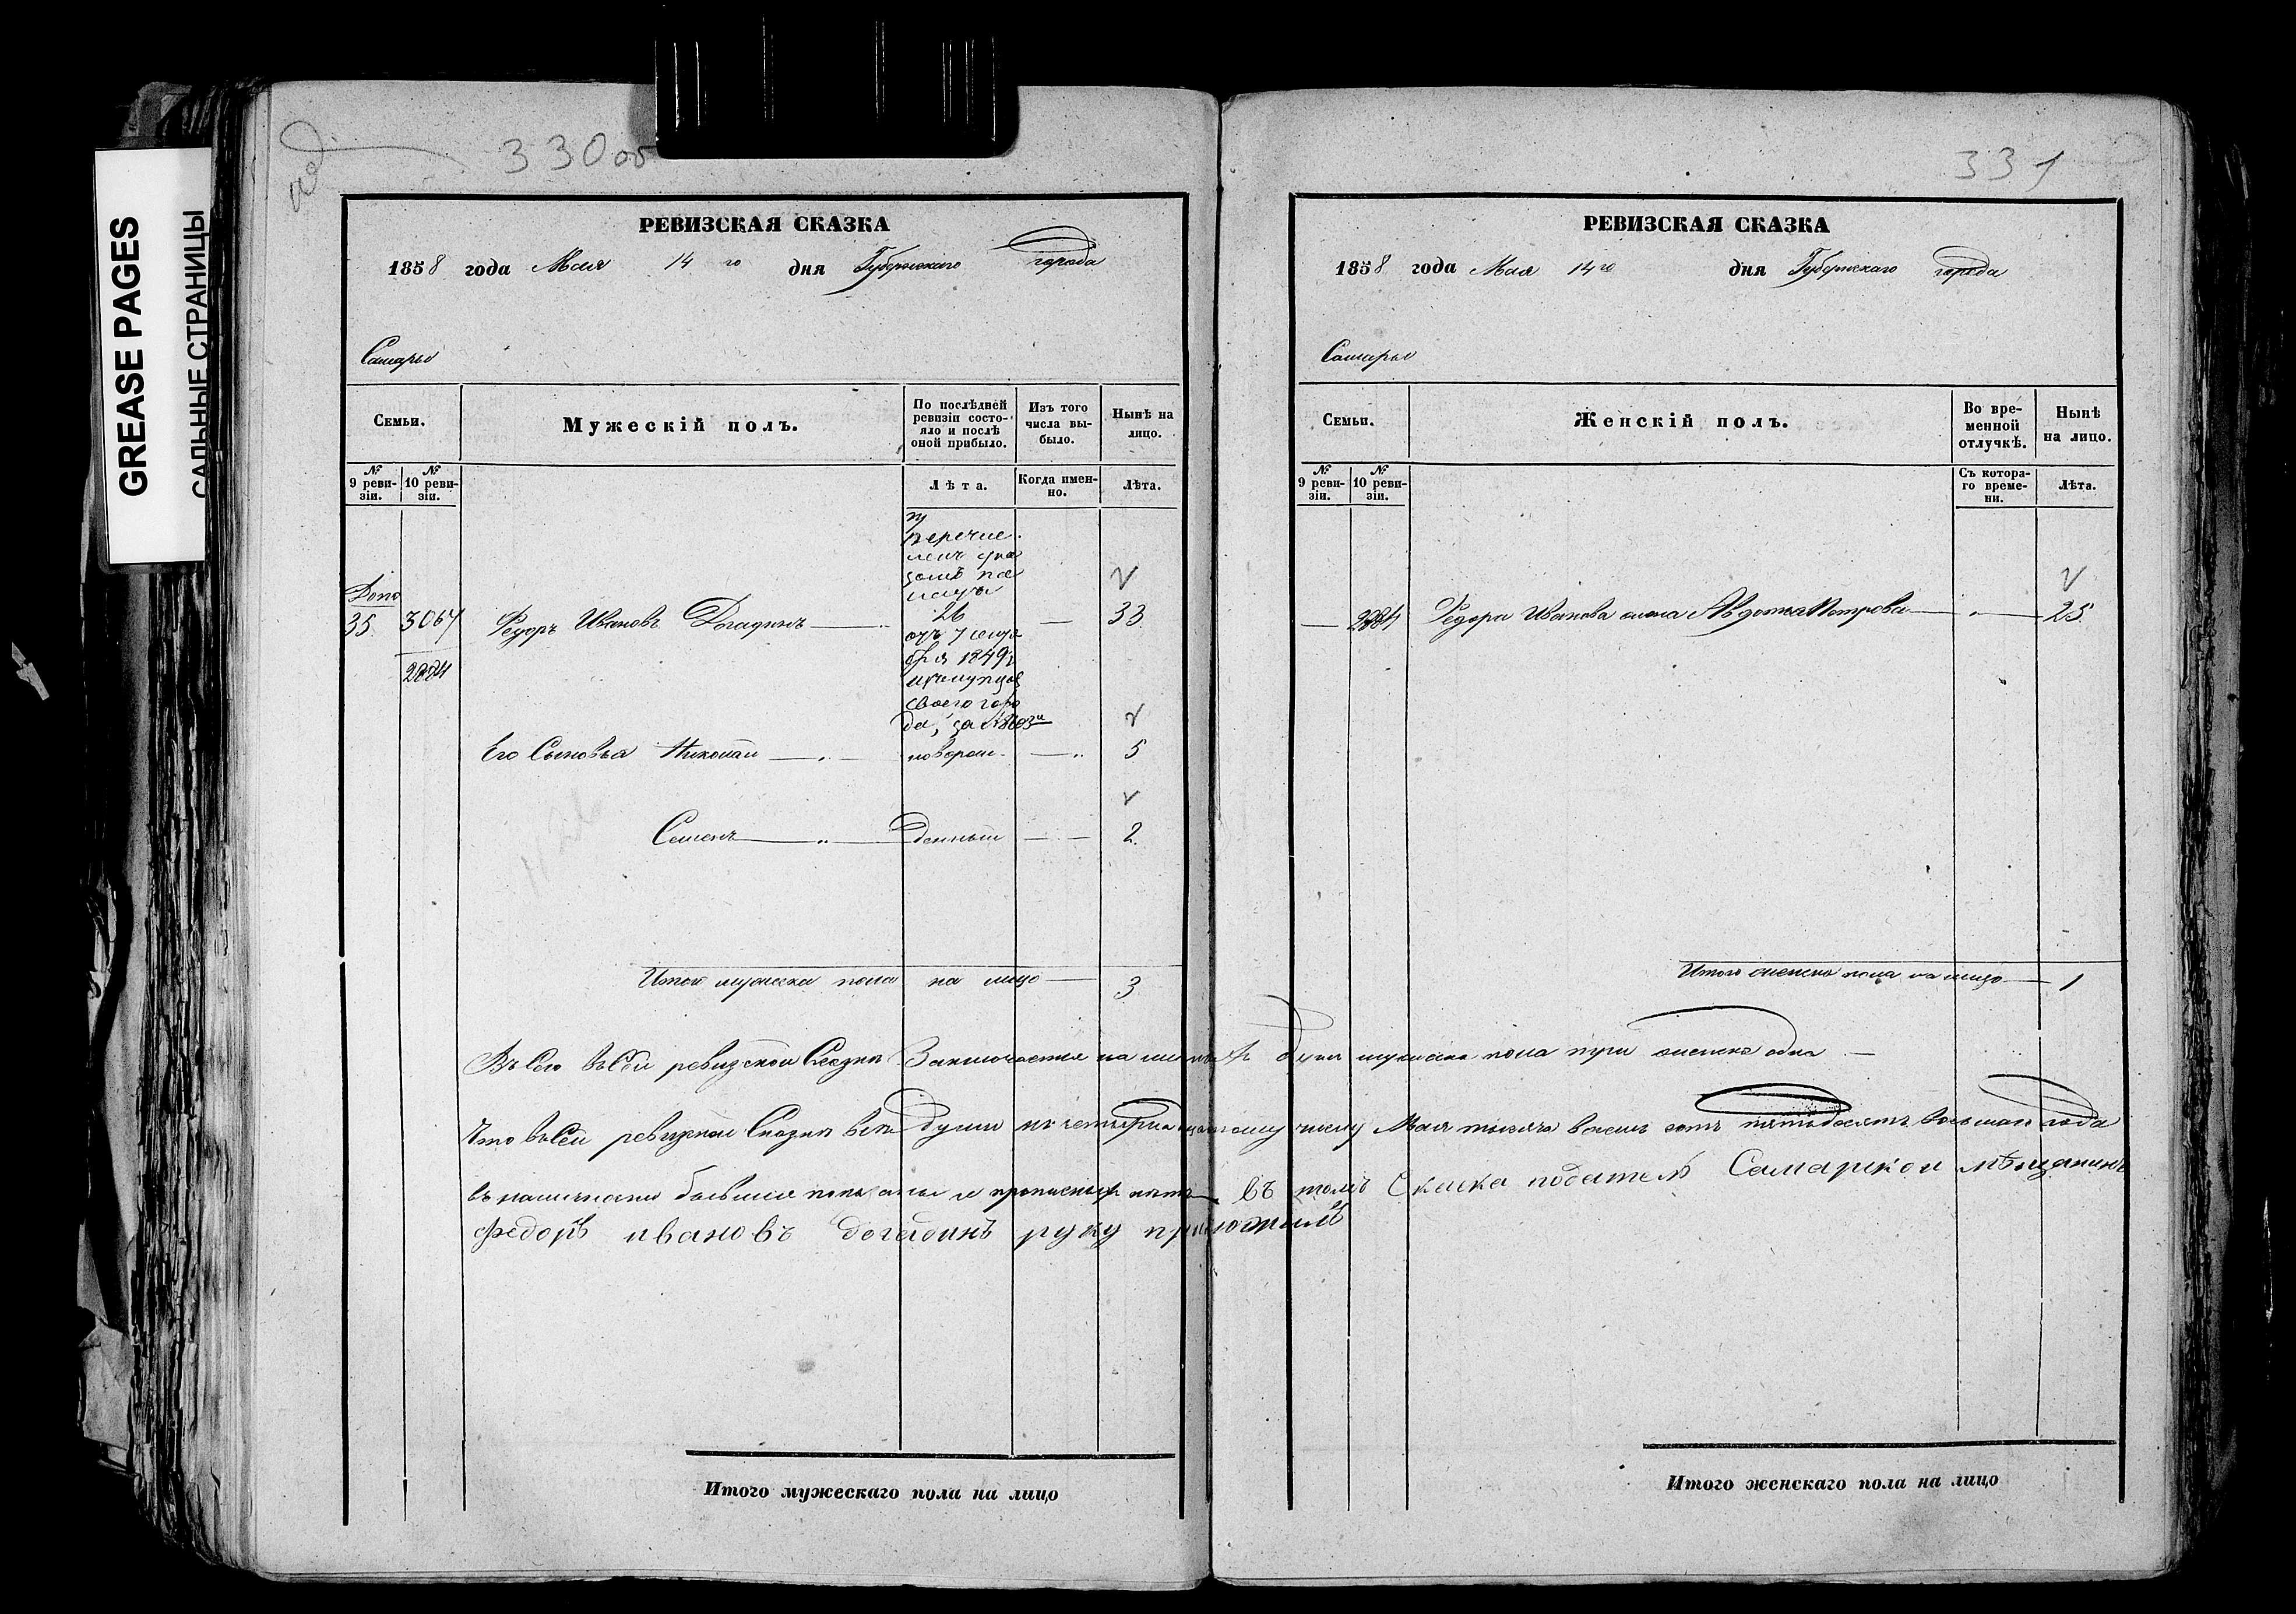 GREASE PAGES
САЛЬНЫЕ СТРАНИЦЫ
330 об
РЕВИЗСКАЯ СКАЗКА
1858 года Мая 14 го дня Губернскаго города
Самары
Семьи.
Мужескій полъ.
По послѣдней ревизіи состо-
яло и послѣ
оной прибыло.
Изъ того
числа вы-
было.
Нынѣ на
лицо.
№
9 реви-
зіи.
№
10 реви-
зіи.
Лѣта.
Когда имен-
но.
Лѣта.
перечис
ленъ ука
зомъ па
латы
Допо
35. 3064 Федоръ Ивановъ Догадинъ 26 33
отъ 7 сентя
бря 1849 г
2884
изъ купцов
своего горо
да, за №
Его Сыновья Николай новорож 5
Семенъ денный 2.
Итого мужеска пола на лицо 3
331
РЕВИЗСКАЯ СКАЗКА
1858 года Мая 14 го дня Губернскаго города
Самары
Семьи.
Женскій полъ.
Во вре-
менной
отлучкѣ.
Нынѣ
на лицо.
№
9 реви-
зіи.
№
10 реви-
зіи.
Съ котора-
го време-
ни.
Лѣта.
2884 Федора Иванова жена Авдотья Петрова 25.
Итого женска пола на лицо 1
Въ сей ревизской Сказки Заключается на лицо душъ мужеска пола три женска одна
Что въ сей ревизской Сказки все души къ четырнадцатому числу Мая тысяча восемь сотъ пятьдесятъ восьмаго года
въ наличности бывшие показаны и прописныхъ нетъ въ томъ Скаска подателъ Самарской мѣщанинъ
федоръ ивановъ догадинъ руку приложилъ
Итого мужескаго пола на лицо
Итого женскаго пола на лицо